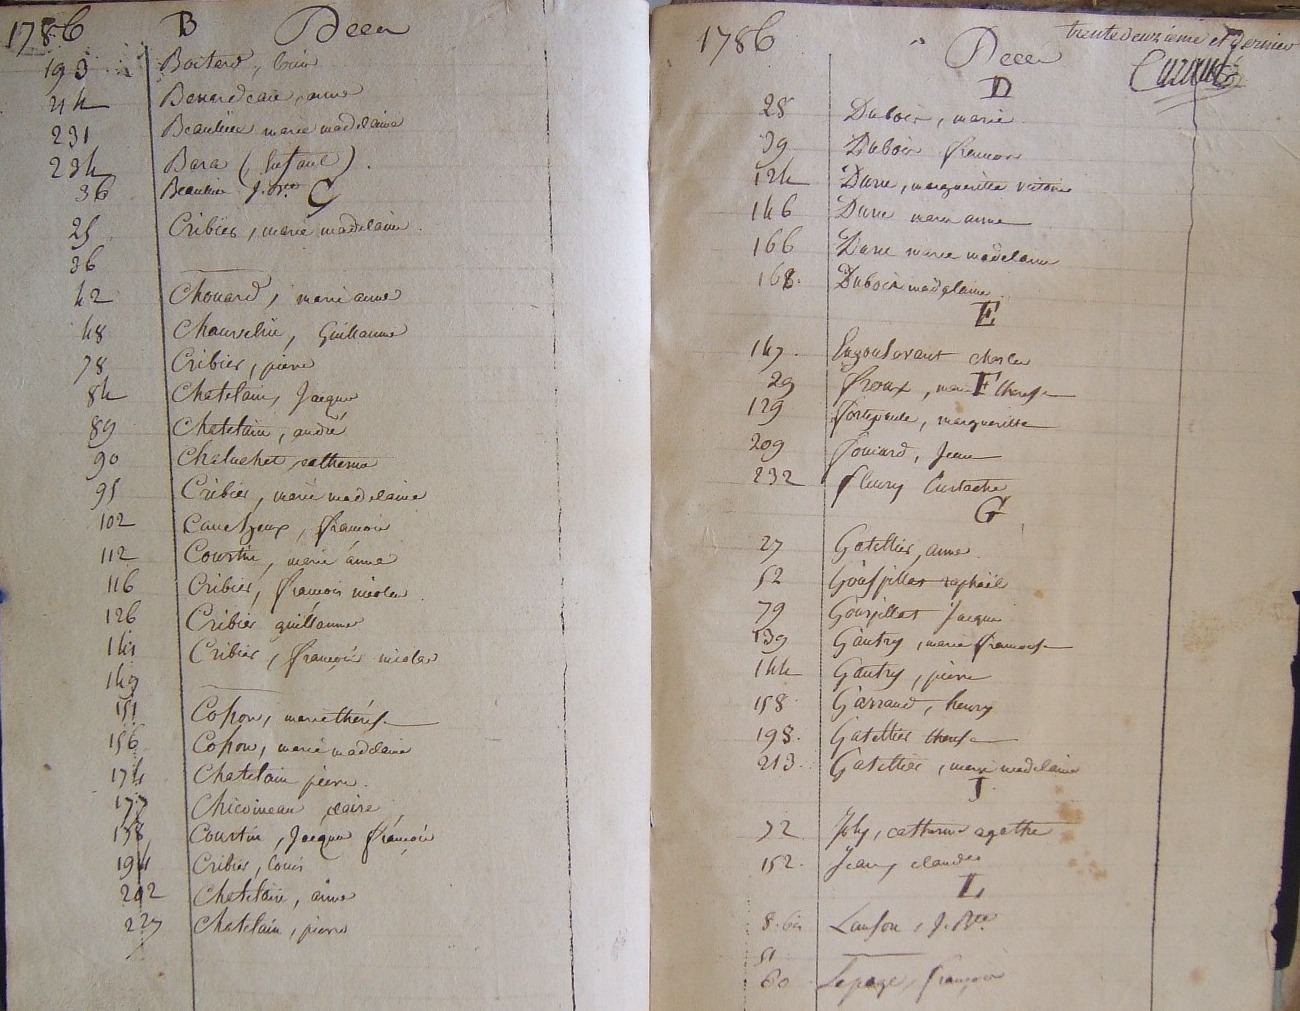 1786 B Deces
193 Boitard, Louis
214 Benardeau, anne
231 Beaulieu marie madelaine
234 Bara (enfant).
36 Beaulieu J. Bte
C
25 Cribier, marie madelaine.
36
42 Chouard, marie anne
48 Chauvelin, Guillaume
78 Cribier, pierre
84 Chatelain, Jacque
89 Chatelain, andré
90 catherine
95 Cribier, marie madelaine
102 francois
112 Courtin, marie anne
116 Cribier, francois nicolas
126 Cribier guillaume
144 Cribier, francois nicolas
149
151 Copon, marie thérese
156 Copon, marie madelaine
174 Chatelain pierre.
177 Chicoineau claire
178 Courtin, Jacque francois
194 Cribier, Louis
202 Chatelain, anne
227 Chatelain, pierre
1786 Deces
trente deuxieme et dernier
D
28 Dubois, marie
39 Dubois francois
124 Daru, margueritte victoire
146 Daru marie anne
166 Daru marie madelaine
168. Dubois madelaine
E
147. Engoulevant charles
F
29 froux, marie therese
129 margueritte
209 Jean
232 fleury Eustache
G
27 Gatellier, anne.
52 Goupillat raphaël
79 Goupillat Jacque
139 Gautry, marie francoise
144 Gautry, pierre
158 Garraud, henry
198. Gatellier therese
213. Gatellier, marie madelaine
J
72 Joly, catherine agathe
152. Jean, claude
L
8. bis Lanson, J. Bte.
51
60 Lepage, francois